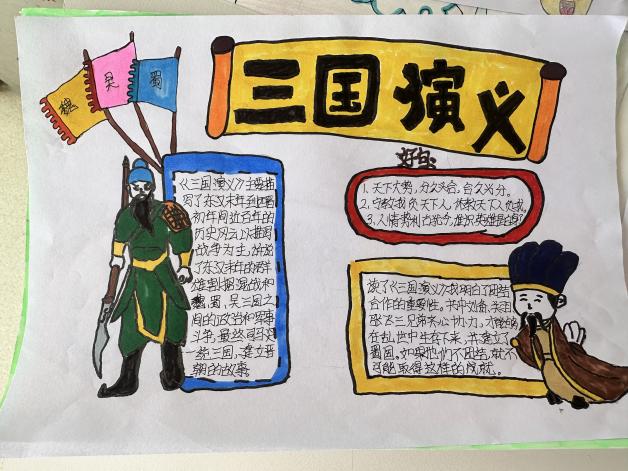 三国演义
魏
吴
蜀
《三国演义》主要描
写了东汉末年到西晋
初年间近百年的
历史风云，以描写
战争为主，诉说
了东汉末年的群
雄割据混战和
魏、蜀、吴三国之
间的政治和军事
斗争，最终司马炎
一统三国，建立晋
朝的故事。
好句：
1、天下大势，分久必合，合久必分。
2、宁教我负天下人，休教天下人负我。
3、人情势利古犹今，谁识英雄是白身
读了《三国演义》我明白了团结
合作的重要性。书中刘备、关羽
张飞三兄弟齐心协力，才能够
在乱世中生存下来，并建立了
蜀国。如果他们不团结，就不
可能取得这样的成就。